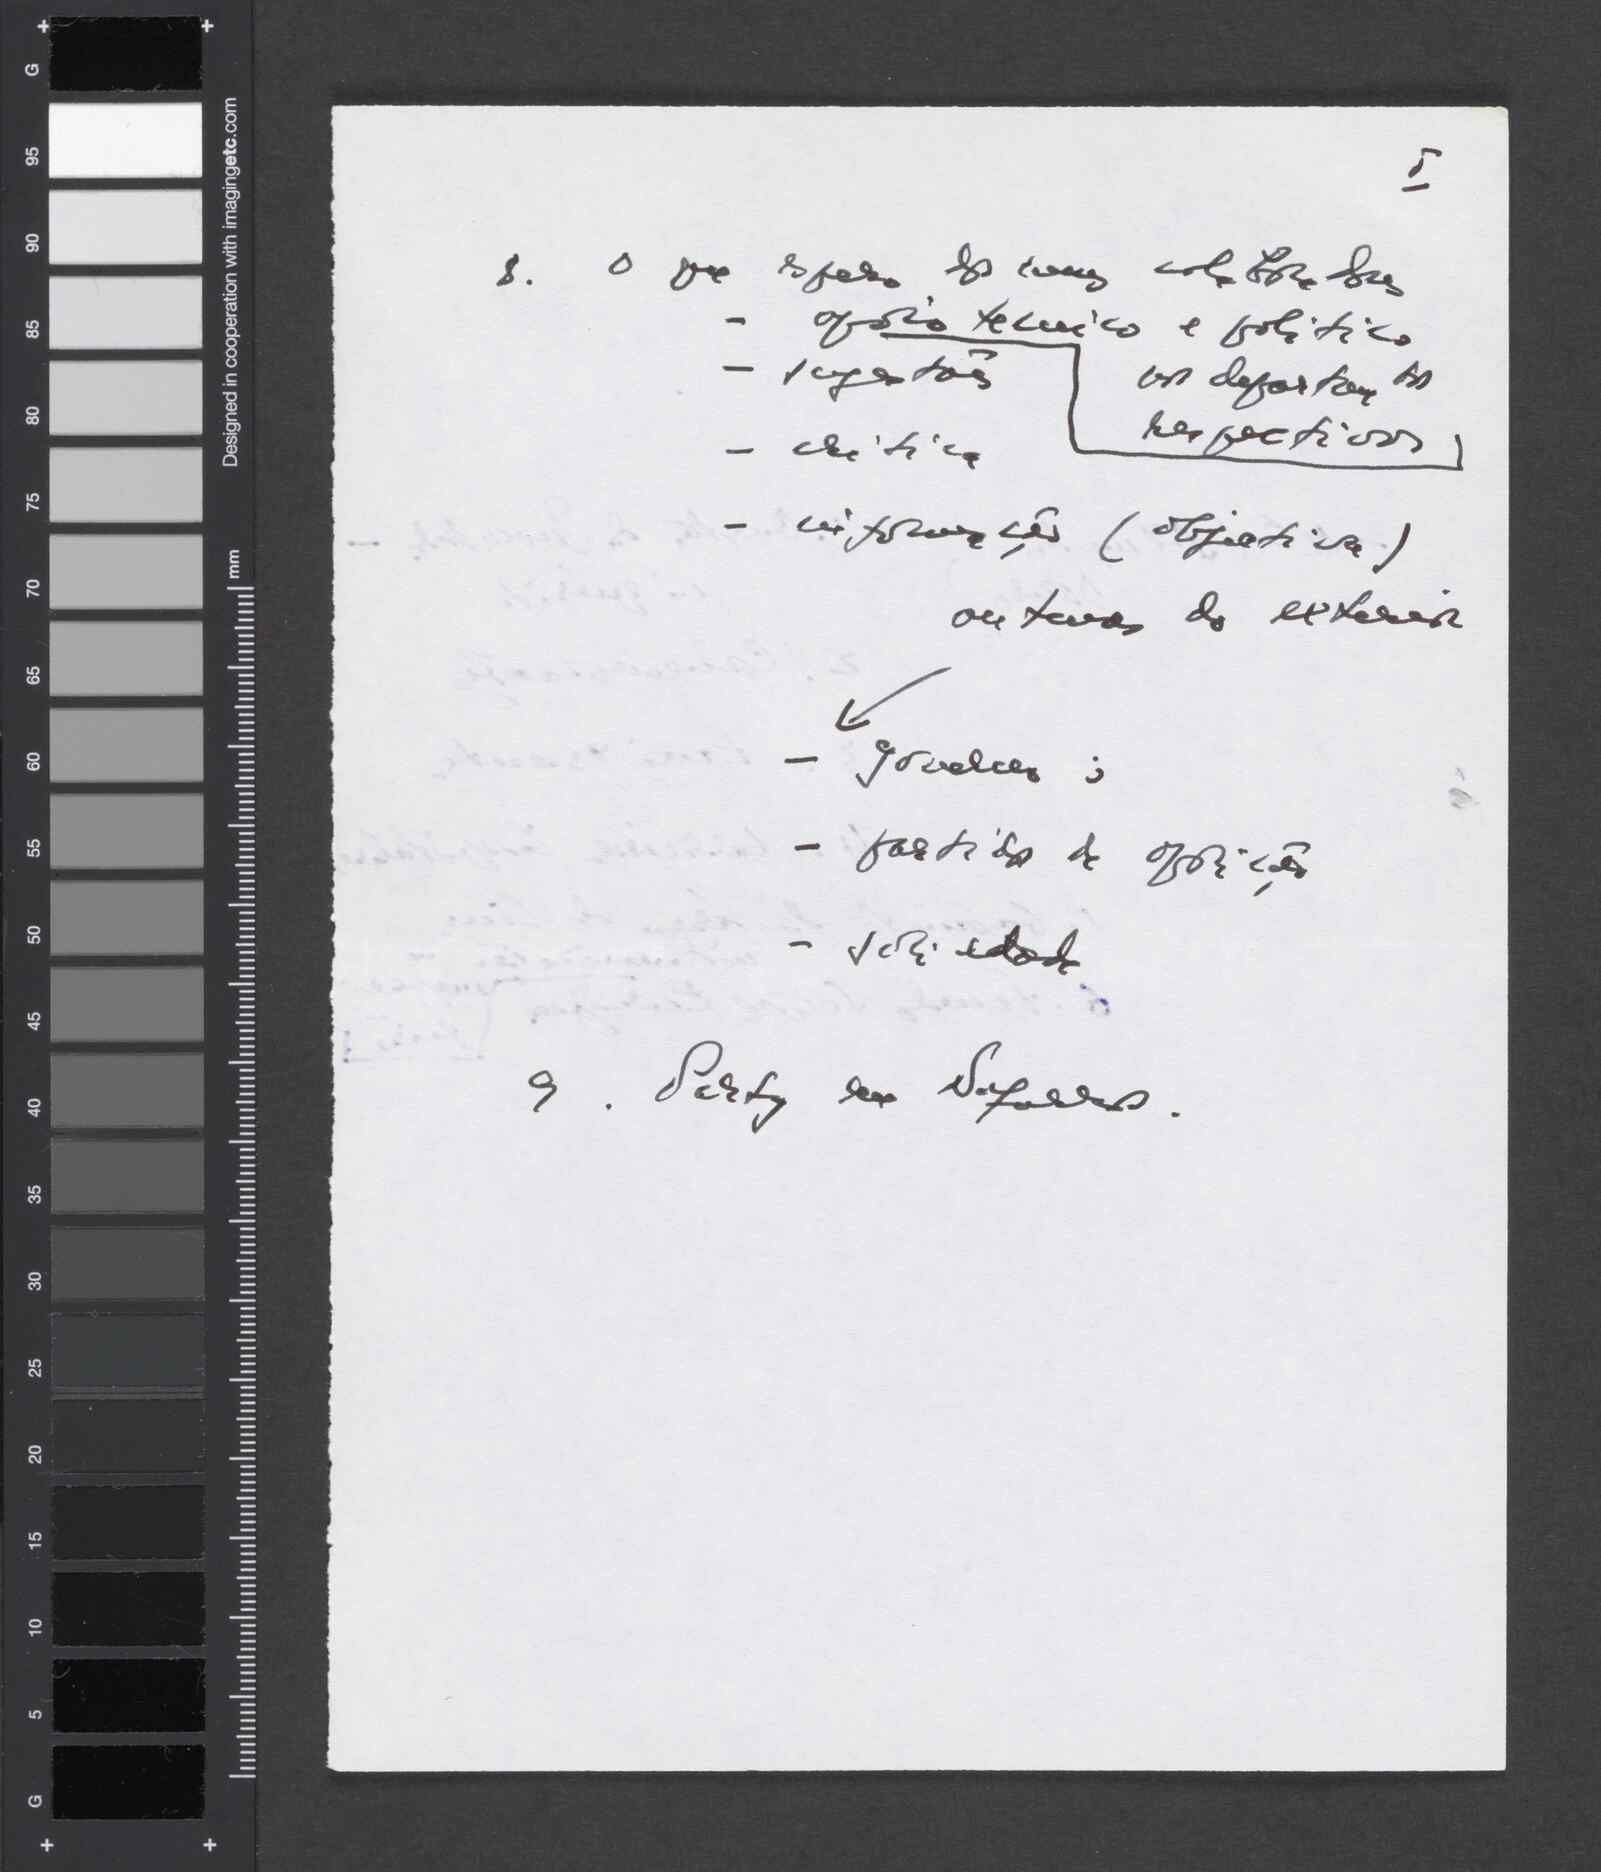 5
8. O que espero dos meus colaboradores
- apoio tecnico e politico
nos departamtos
respectivos
- sugestões
- critica
- informação (objectiva)
antenas do exterior
- governo;
- partidos de oposição
- sociedade
9.
G 95 90 85 80 75 70 65 60 55 50 45 40 35 30 25 20 15 10 5 G
Designed in cooperation with imagingetc.com
mm